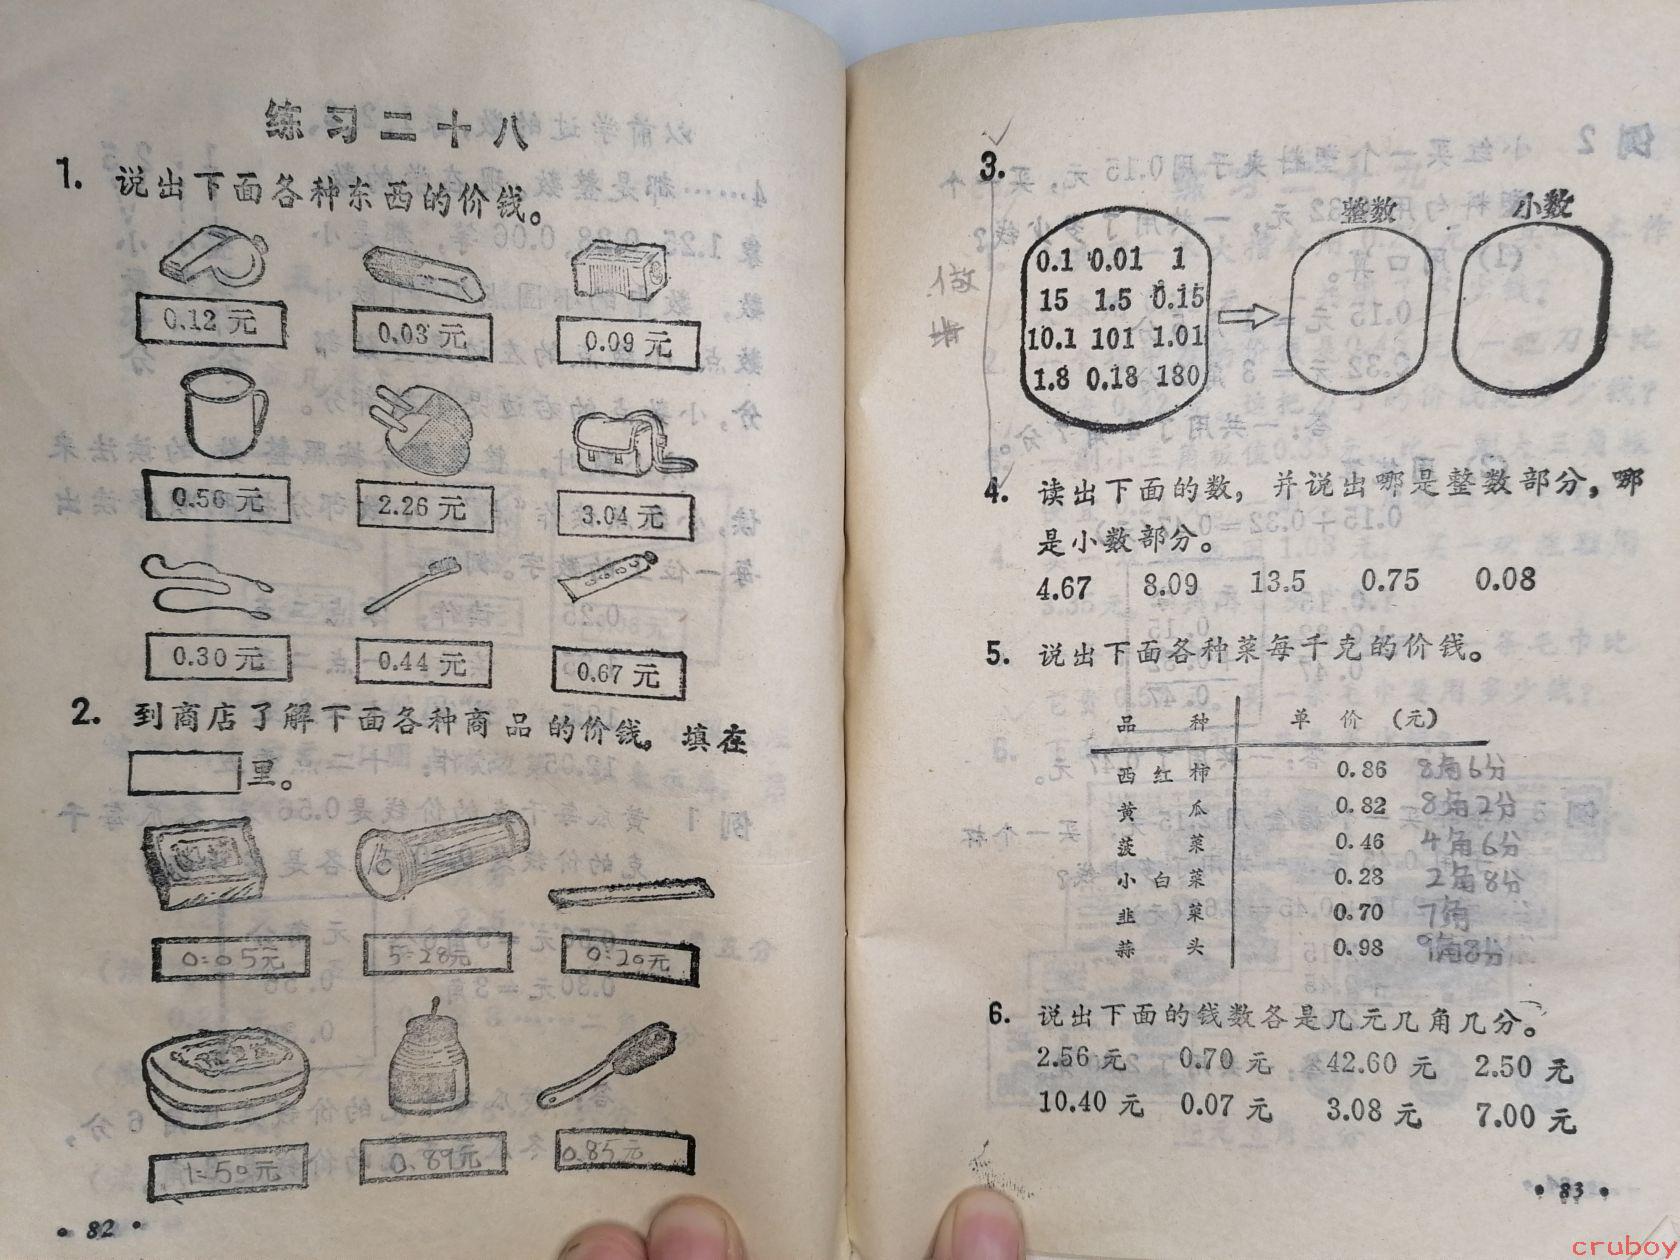 练习二十八
1. 说出下面各种东西的价钱。
0.12元 0.03元 0.09元
0.56元 2.26元 3.04元
0.30元 0.44元 0.67元
2. 到商店了解下面各种商品的价钱,填在
里。
0=05元 5=28元 0=20元
1=50元 0.89元 0.85元
• 82 •
3.
整数 小数
0.1 0.01 1
15 1.5 0.15
10.1 101 1.01
1.8 0.18 180
4. 读出下面的数,并说出哪是整数部分,哪
是小数部分。
4.67 8.09 13.5 0.75 0.08
5. 说出下面各种菜每千克的价钱。
品种 单价 (元)
西红柿 0.86 8角6分
黄瓜 0.82 8角2分
菠菜 0.46 4角6分
小白菜 0.28 2角8分
韭菜 0.70 7角
蒜头 0.98 9角8分
6. 说出下面的钱数各是几元几角几分。
2.56元 0.70元 42.60元 2.50元
10.40元 0.07元 3.08元 7.00元
• 83 •
cruboy